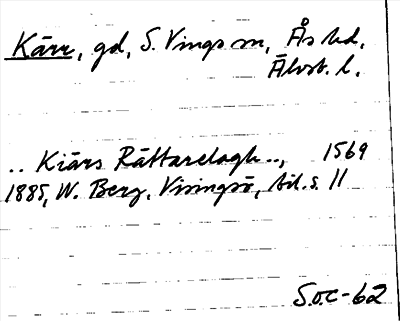 Kärr, gd, S. Vings sn, Ås hd,
Älvsb. l.
.. Kiärs Rättarelagh.., 1569
1885, W. Berg, Visingsö, bil. s. 11
S.O.C-62